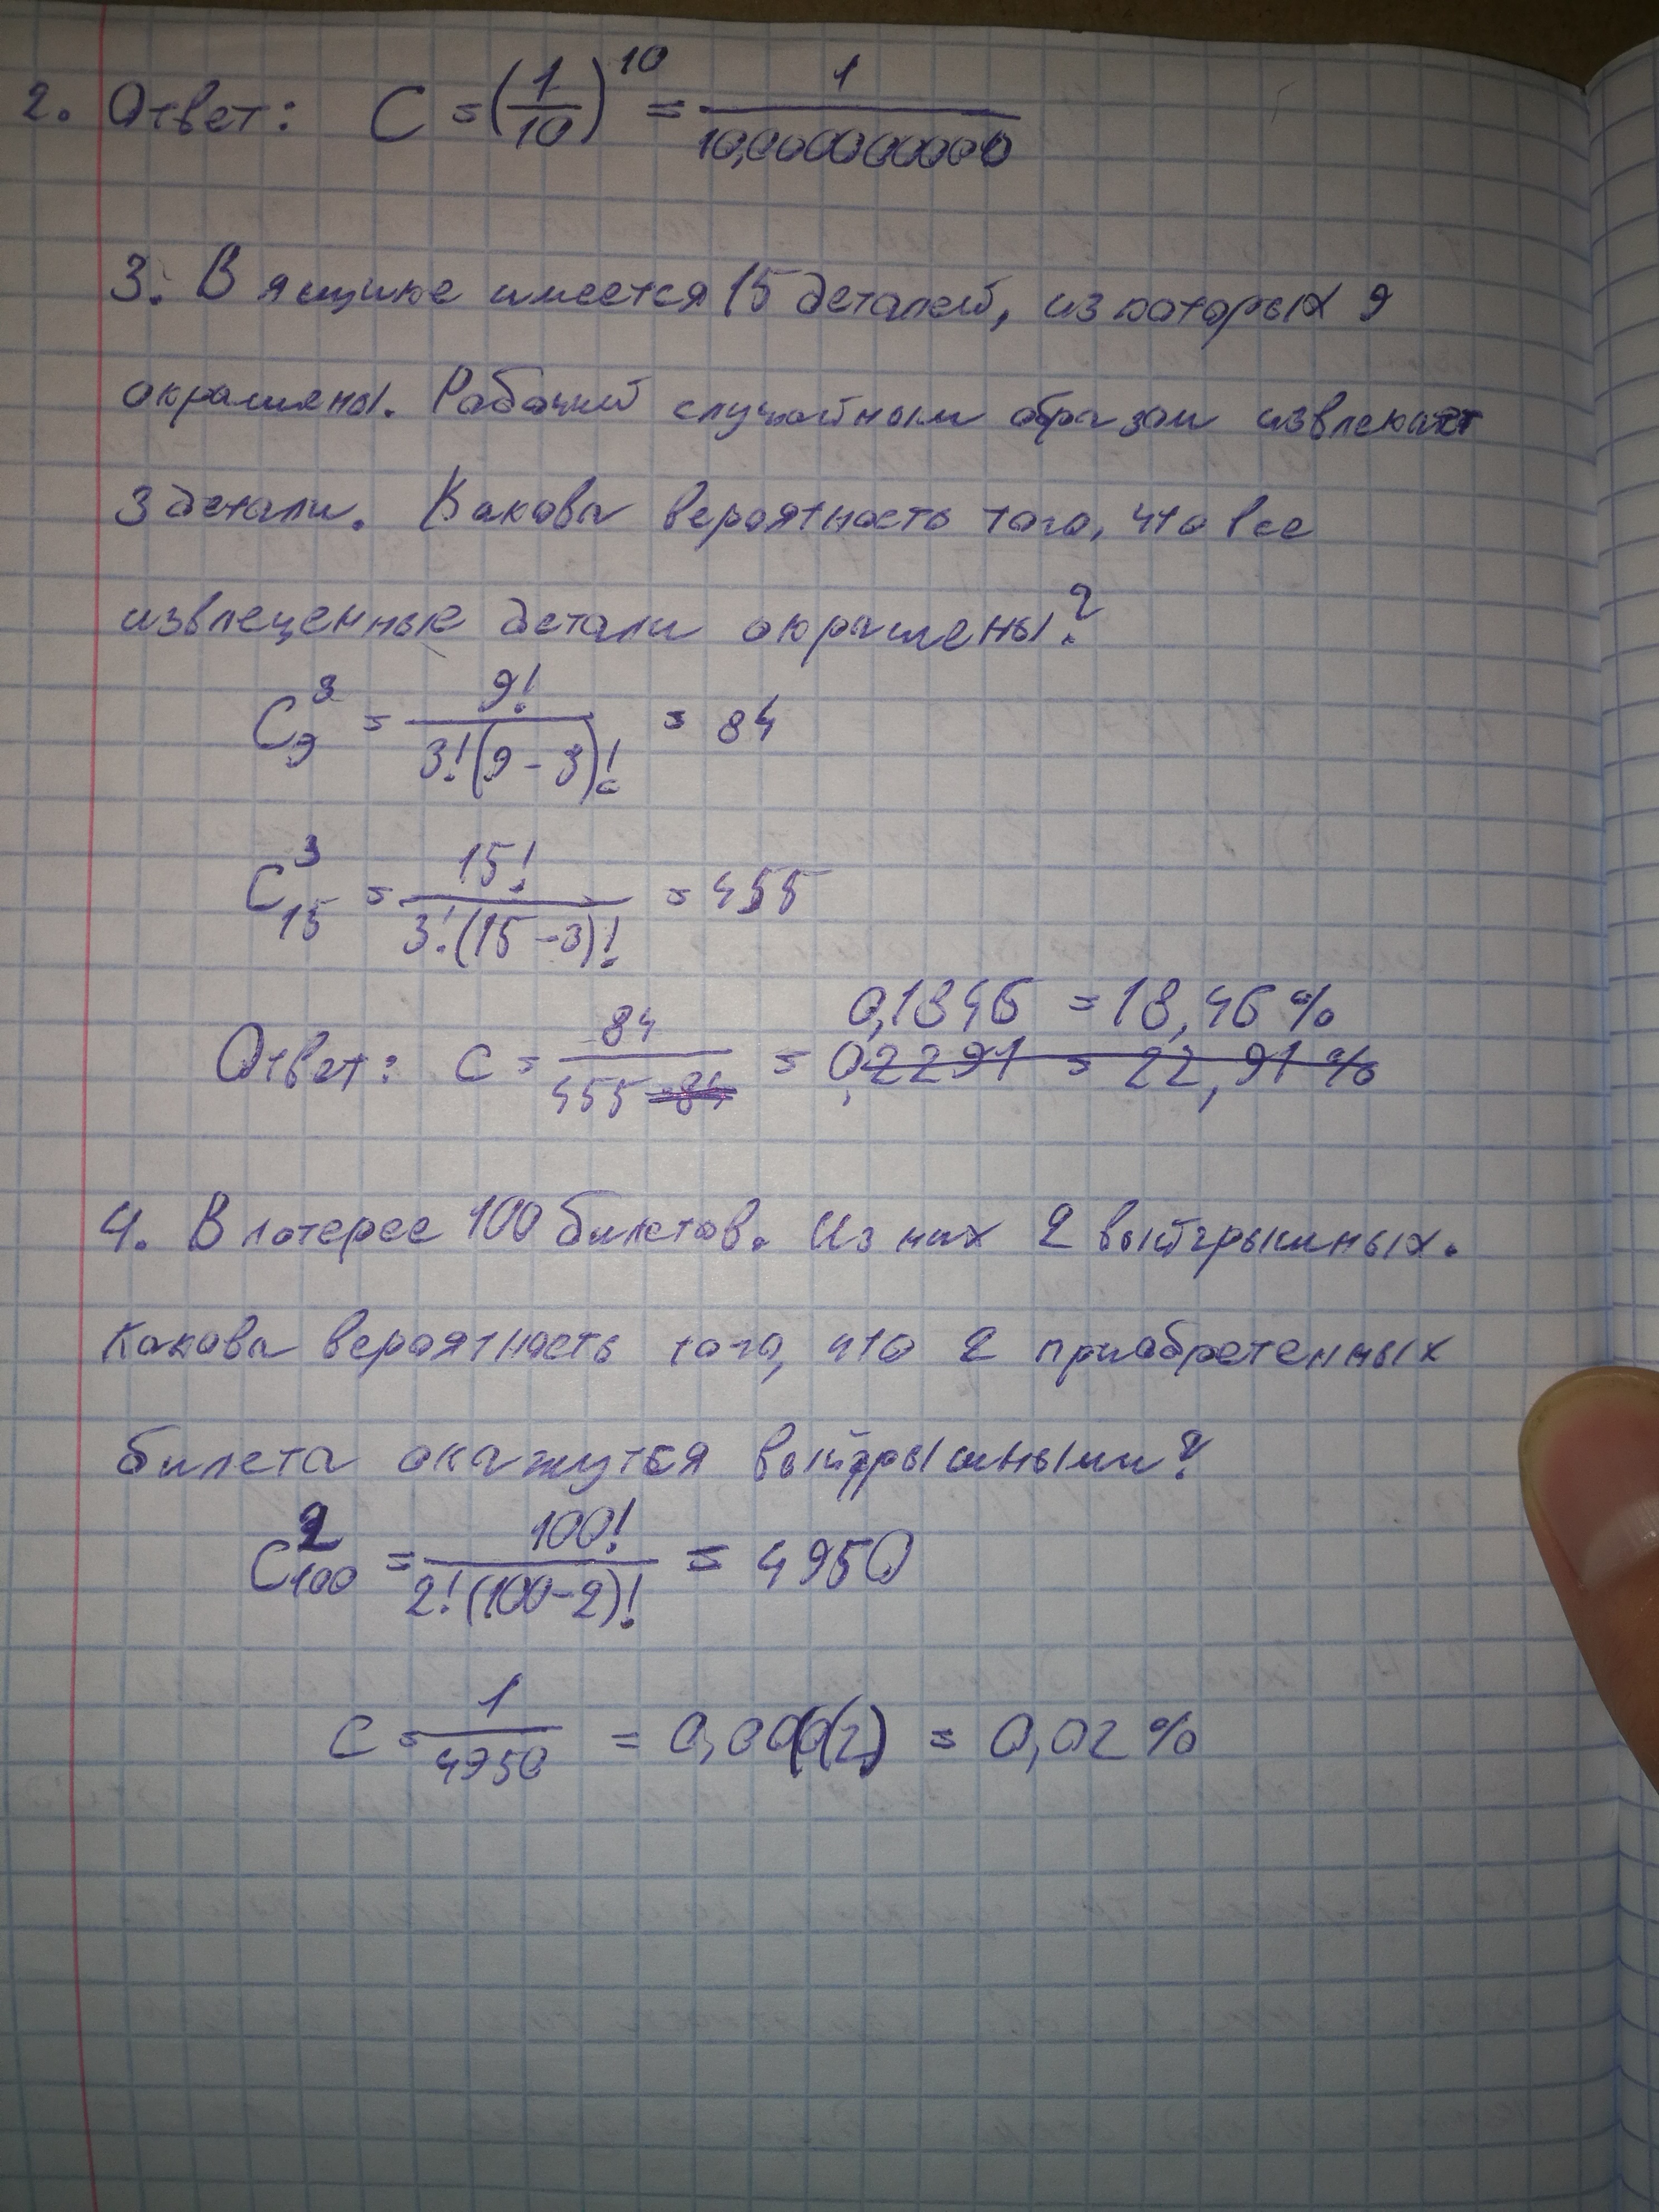 2. Ответ: C = (1/10)^10 = 1/10,0000000000
3. В ящике имеется 15 деталей, из которых 9
окрашены. Рабочий случайным образом извлекает
3 детали. Какова вероятность того, что все
извлеценные детали окрашены?
C_9^3 = 9!/3!(9-3)! = 84
C_15^3 = 15!/3!(15-3)! = 455
0,1846 = 18,46%
Ответ: C = 84/455-84 = 0,2291 = 22,91%
4. В лотерее 100 билетов. Из них 2 выйгрышных.
Какова вероятность того, что 2 приобретенных
билета окажуться выйгрышными?
C_100^2 = 100!/2!(100-2)! = 4950
C = 1/4950 = 0,00(02) = 0,02%